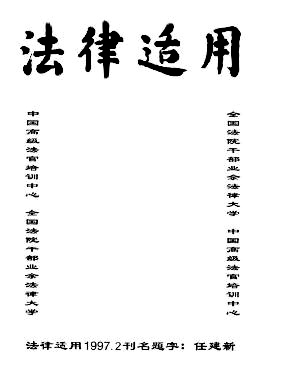 法律适用
中国高级法官培训中心 全国法院干部业余法律大学
全国法院干部业余法律大学 中国高级法官培训中心
法律适用1997.2刊名题字：任建新